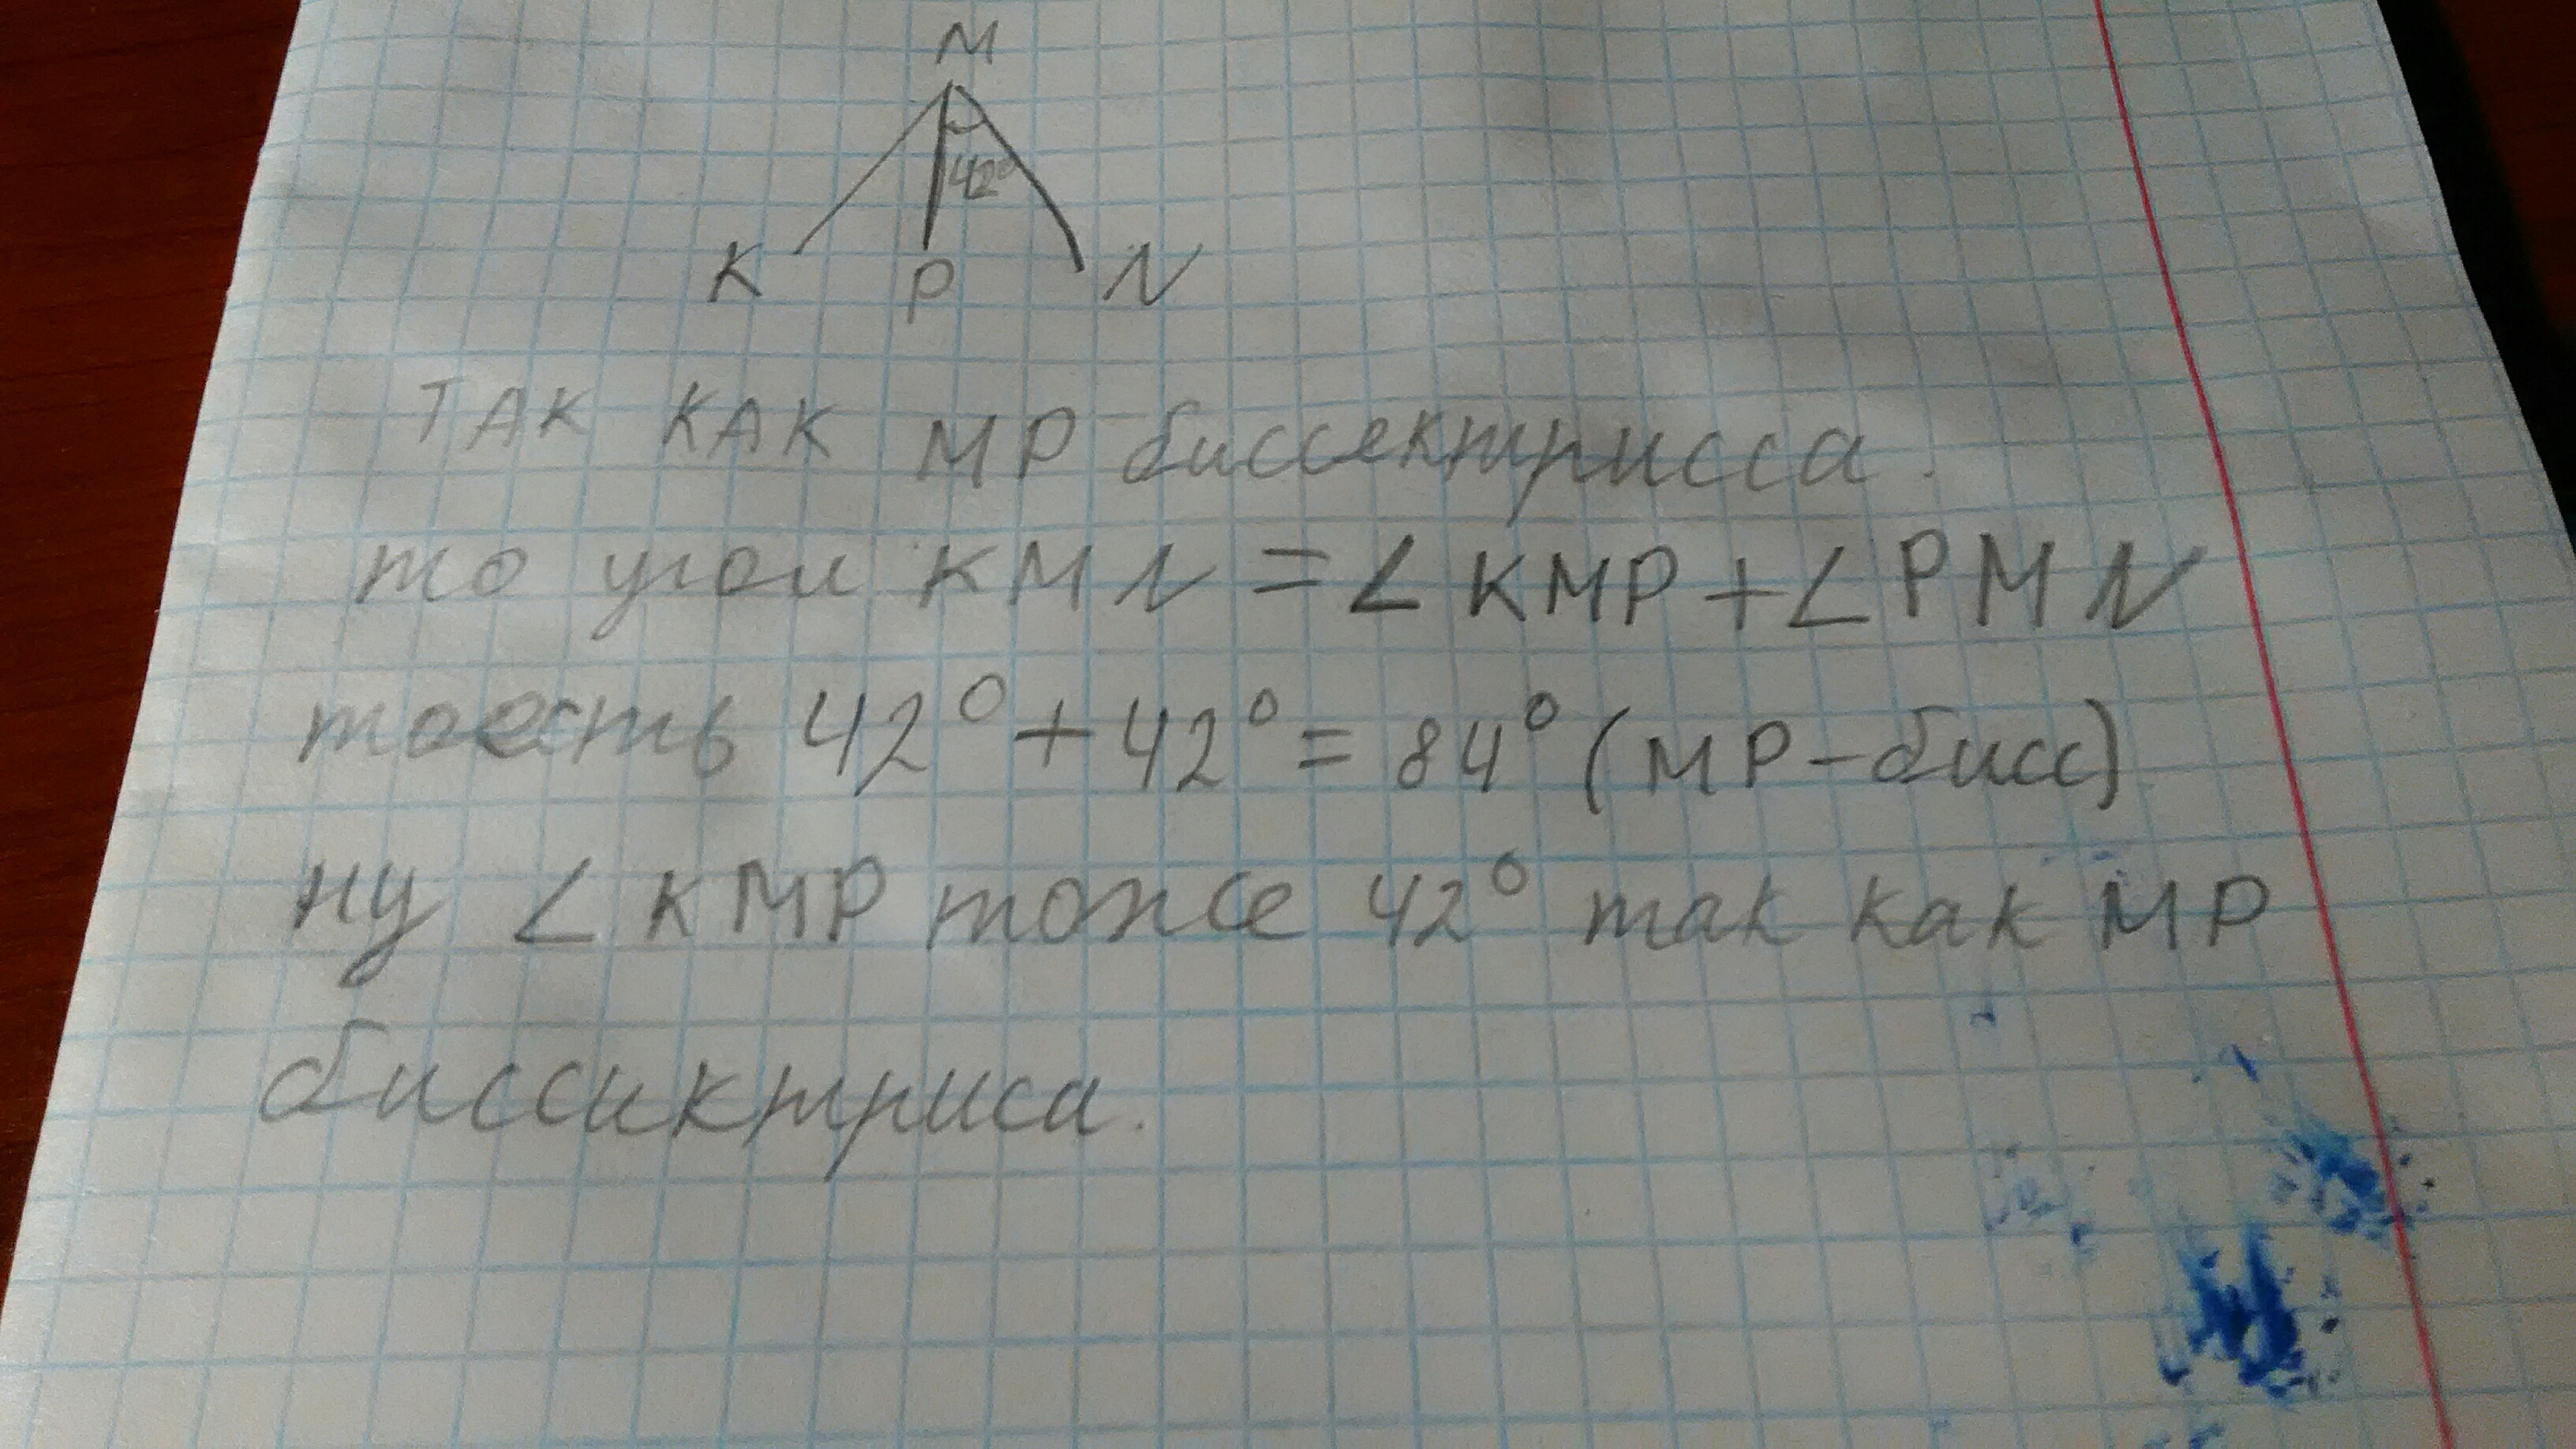 M
42°
K P N
ТАК КАК МР биссектрисса.
то угол KMN = ∠ KMP + ∠ PMN
тоесть 42° + 42° = 84° (МР - бисс)
ну ∠ KMP тоже 42° так как МР
биссиктриса.